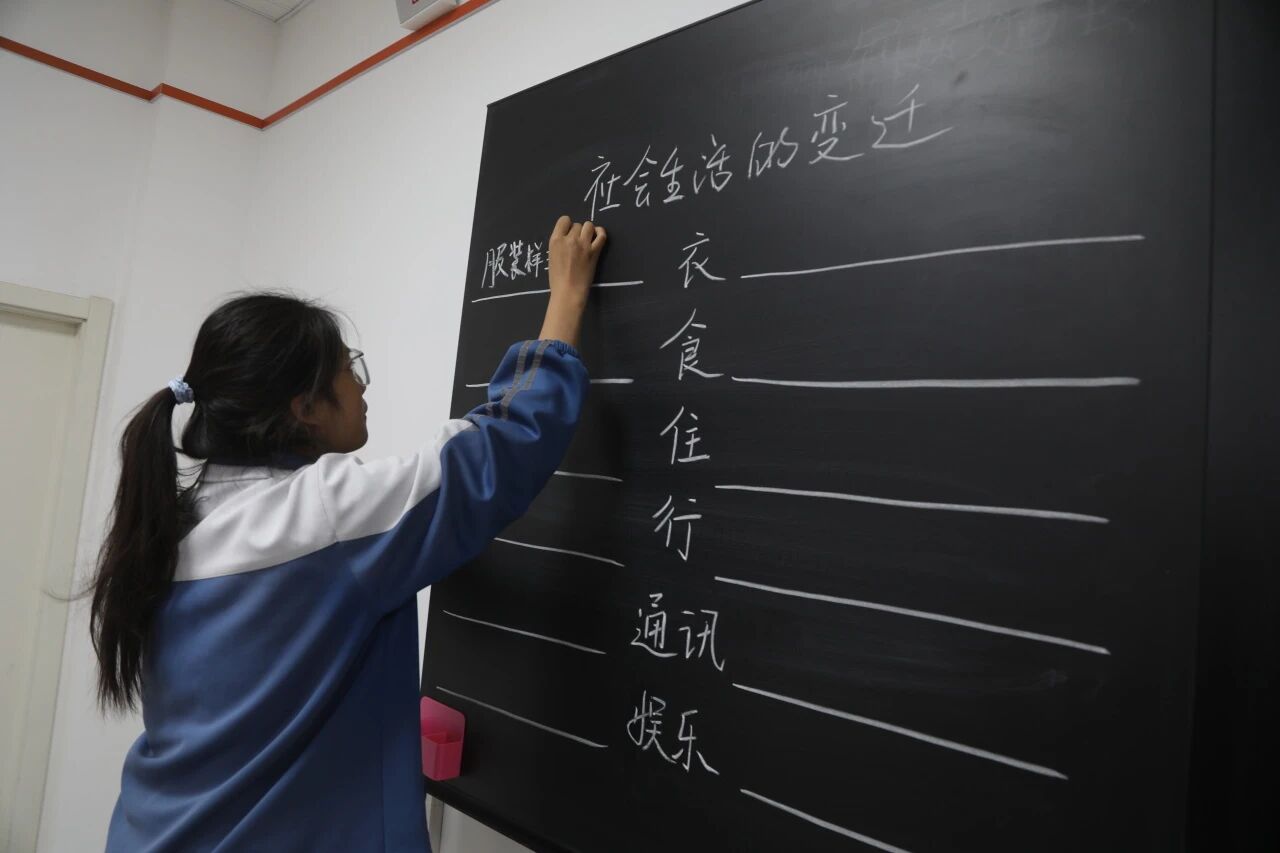 社会生活的变迁
服装样 衣
食
住
行
通讯
娱乐